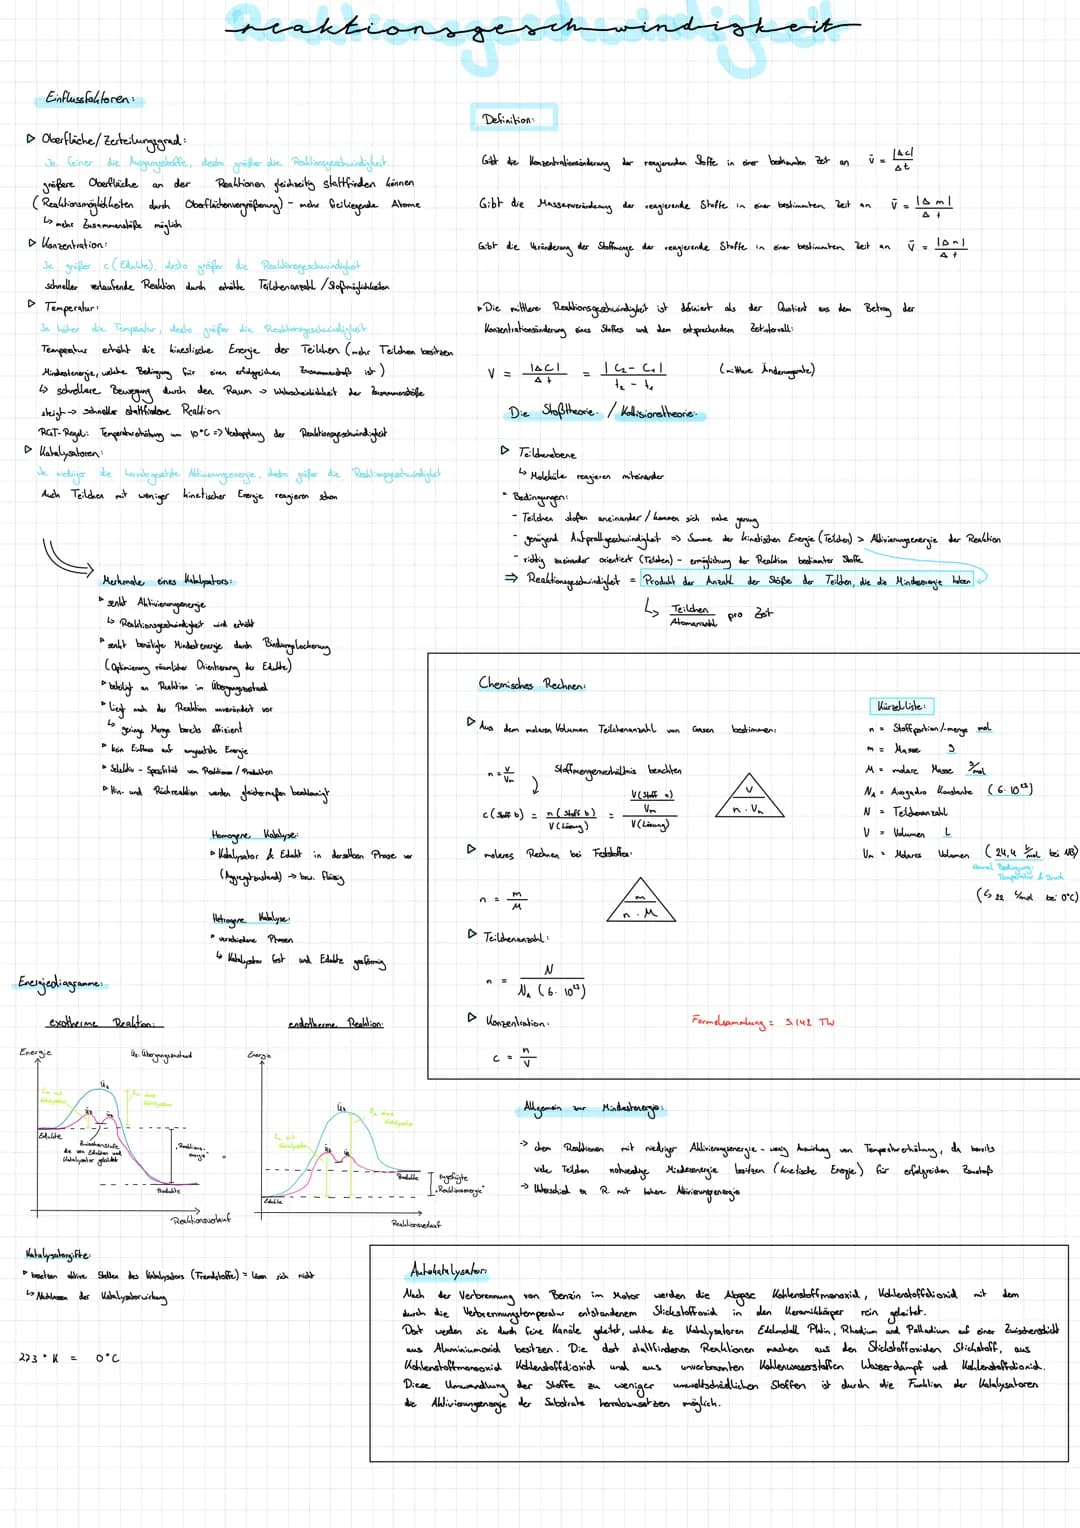 Reaktionsgeschwindigkeit
Einflussfaktoren:
▷ Oberfläche/Zerteilungsgrad:
Je feiner die Ausgangsstoffe, desto größer die Reaktionsgeschwindigkeit
größere Oberfläche an der Reaktionen gleichzeitig stattfinden können
(Reaktionsmöglichkeiten durch Oberflächenvergrößerung) - mehr freiliegende Atome
↳ mehr Zusammenstöße möglich
▷ Konzentration:
Je größer c (Edukte), desto größer die Reaktionsgeschwindigkeit
schneller verlaufende Reaktion durch erhöhte Teilchenanzahl / Stoßmöglichkeiten
▷ Temperatur:
Je höher die Temperatur, desto größer die Reaktionsgeschwindigkeit
Temperatur erhöht die kinetische Energie der Teilchen (mehr Teilchen besitzen
Mindestenergie, welche Bedingung für einen erfolgreichen Zusammenstoß ist)
↳ schnellere Bewegung durch den Raum → Wahrscheinlichkeit der Zusammenstöße
steigt → schneller stattfindene Reaktion
RGT-Regel: Temperaturerhöhung um 10°C => Verdopplung der Reaktionsgeschwindigkeit
▷ Katalysatoren:
Je niedriger die herabgesetzte Aktivierungsenergie, desto größer die Reaktionsgeschwindigkeit
Auch Teilchen mit weniger kinetischer Energie reagieren schon
Merkmale eines Katalysators:
▷ senkt Aktivierungsenergie
↳ Reaktionsgeschwindigkeit wird erhöht
▷ senkt benötigte Mindestenergie durch Bindungslockerung
(Optimierung räumlicher Orientierung der Edukte)
▷ beteiligt an Reaktion in Übergangszustand
▷ liegt nach der Reaktion unverändert vor
↳ geringe Menge bereits effizient
▷ kein Einfluss auf umgesetzte Energie
▷ Selektiv - Spezifität von Reaktionen / Produkten
▷ Hin- und Rückreaktion werden gleichermaßen beschleunigt
Homogene Katalyse:
▷ Katalysator & Edukt in derselben Phase vor
(Aggregatzustand) → bsw. flüssig
Hetrogene Katalyse:
▷ verschiedene Phasen
↳ Katalysator fest und Edukte gasförmig
Energiediagramme:
exotherme Reaktion:
endotherme Reaktion:
Energie
Üz: Übergangszustand
Üz
Üz
Üz
EA mit Katalysator
EA ohne Katalysator
Edukte
Zwischenstufe
die von Edukten und
Katalysator gebildet
"Reaktions-
energie"
Produkte
Reaktionsverlauf
Energie
Üz
Üz
Üz
EA mit Katalysator
EA ohne Katalysator
Produkte
Edukte
zugefügte
"Reaktionsenergie"
Reaktionsverlauf
Katalysatorgifte:
▷ besetzen aktive Stellen des Katalysators (Fremdstoffe) = lösen sich nicht
↳ Nachlassen der Katalysatorwirkung
273 °K = 0°C
Definition:
Gibt die Konzentrationsänderung der reagierenden Stoffe in einer bestimmten Zeit an v̄ = |Δc| / Δt
Gibt die Massenveränderung der reagierende Stoffe in einer bestimmten Zeit an v̄ = |Δm| / Δt
Gibt die Veränderung der Stoffmenge der reagierende Stoffe in einer bestimmten Zeit an v̄ = |Δn| / Δt
▷ Die mittlere Reaktionsgeschwindigkeit ist definiert als der Quotient aus dem Betrag der
Konzentrationsänderung eines Stoffes und dem entsprechendem Zeitintervall:
v = |Δc| / Δt = |c₂ - c₁| / t₂ - t₁ (mittlere Änderungsrate)
Die Stoßtheorie / Kollisionstheorie:
▷ Teilchenebene
↳ Moleküle reagieren miteinander
▷ Bedingungen:
- Teilchen stoßen aneinander / kommen sich nahe genug
- genügend Aufprallgeschwindigkeit => Summe der kinetischen Energie (Teilchen) > Aktivierungsenergie der Reaktion
- richtig zueinander orientiert (Teilchen) - ermöglichung der Reaktion bestimmter Stoffe
=> Reaktionsgeschwindigkeit = Produkt der Anzahl der Stöße der Teilchen, die die Mindestenergie haben
↳ Teilchen / Atomanzahl pro Zeit
Chemisches Rechnen:
▷ Aus dem molaren Volumen Teilchenanzahl von Gasen bestimmen:
n = V / Vm
Stoffmengenverhältnis beachten
c (Stoff b) = n (Stoff b) / V (Lösung) = V (Stoff a) / Vm / V (Lösung)
V
n · Vm
▷ molares Rechnen bei Feststoffen:
n = m / M
m
n · M
▷ Teilchenanzahl:
n = N / NA (6 · 10²³)
▷ Konzentration:
c = n / V
Formelsammlung = S.142 TW
Kürzelliste:
n = Stoffportion/-menge mol
m = Masse g
M = molare Masse g/mol
NA = Avogadro Konstante (6 · 10²³)
N = Teilchenanzahl
V = Volumen L
Vm = Molares Volumen (24,4 L/mol bei NB)
Normal Bedingung:
Temperatur & Druck
(↳ 22 L/mol bei 0°C)
Allgemein zur Mindestenergie:
→ chem Reaktionen mit niedriger Aktivierungsenergie - wenig Auswirkung von Temperaturerhöhung, da bereits
viele Teilchen notwendige Mindestenergie besitzen (kinetische Energie) für erfolgreichen Zusamstoß
→ Unterschied zu R mit hoher Aktivierungsenergie
Autokatalysator:
Nach der Verbrennung von Benzin im Motor werden die Abgase Kohlenstoffmonoxid, Kohlenstoffdioxid mit dem
durch die Verbrennungstemperatur entstandenem Stickstoffoxid in den Keramikkörper rein geleitet.
Dort werden sie durch feine Kanäle geleitet, welche die Katalysatoren Edelmetall Platin, Rhodium und Palladium auf einer Zwischenschicht
aus Aluminiumoxid besitzen. Die dort stattfindenen Reaktionen machen aus den Stickstoffoxiden Stickstoff, aus
Kohlenstoffmonooxid Kohlenstoffdioxid und aus unverbrannten Kohlenwasserstoffen Wasserdampf und Kohlenstoffdioxid.
Diese Umwandlung der Stoffe zu weniger umweltschädlichen Stoffen ist durch die Funktion der Katalysatoren
die Aktivierungsenergie der Substrate herrabzusetzen möglich.